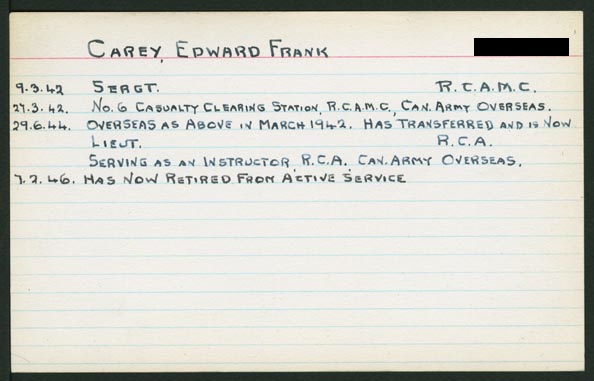 CAREY, EDWARD FRANK
9.3.42 SERGT. R.C.A.M.C.
27.3.42. No. 6 CASUALTY CLEARING STATION, R.C.A.M.C., CAN. ARMY OVERSEAS.
29.6.44. OVERSEAS AS ABOVE IN MARCH 1942. HAS TRANSFERRED AND IS NOW
LIEUT. R.C.A.
SERVING AS AN INSTRUCTOR R.C.A. CAN. ARMY OVERSEAS.
7.2.46. HAS NOW RETIRED FROM ACTIVE SERVICE